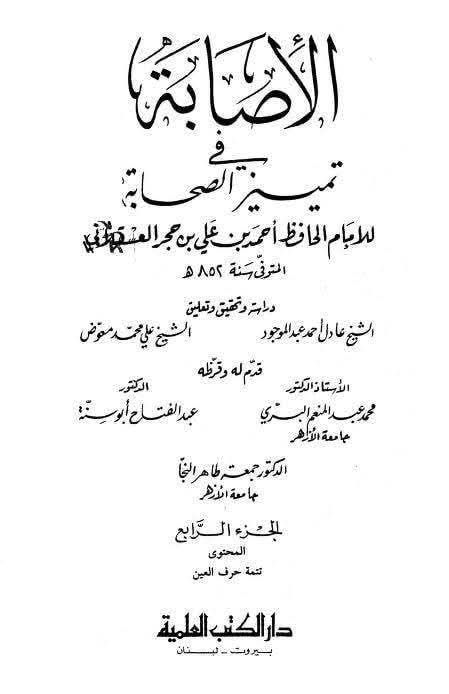 الأصابة
في
تمييز الصحابة
للامام الحافظ أحمد بن علي بن حجر العسقلاني
المتوفى سنة ٨٥٢ هـ
دراسة وتحقيق وتعليق
الشيخ عادل أحمد عبد الموجود الشيخ علي محمد معوض
قدم له وقرظه
الأستاذ الدكتور الدكتور
محمد عبد المنعم البري عبد الفتاح أبو سنة
جامعة الأزهر
الدكتور جمعة طاهر النجا
جامعة الأزهر
الجزء الرابع
المحتوى
تتمة حرف العين
دار الكتب العلمية
بيروت - لبنان